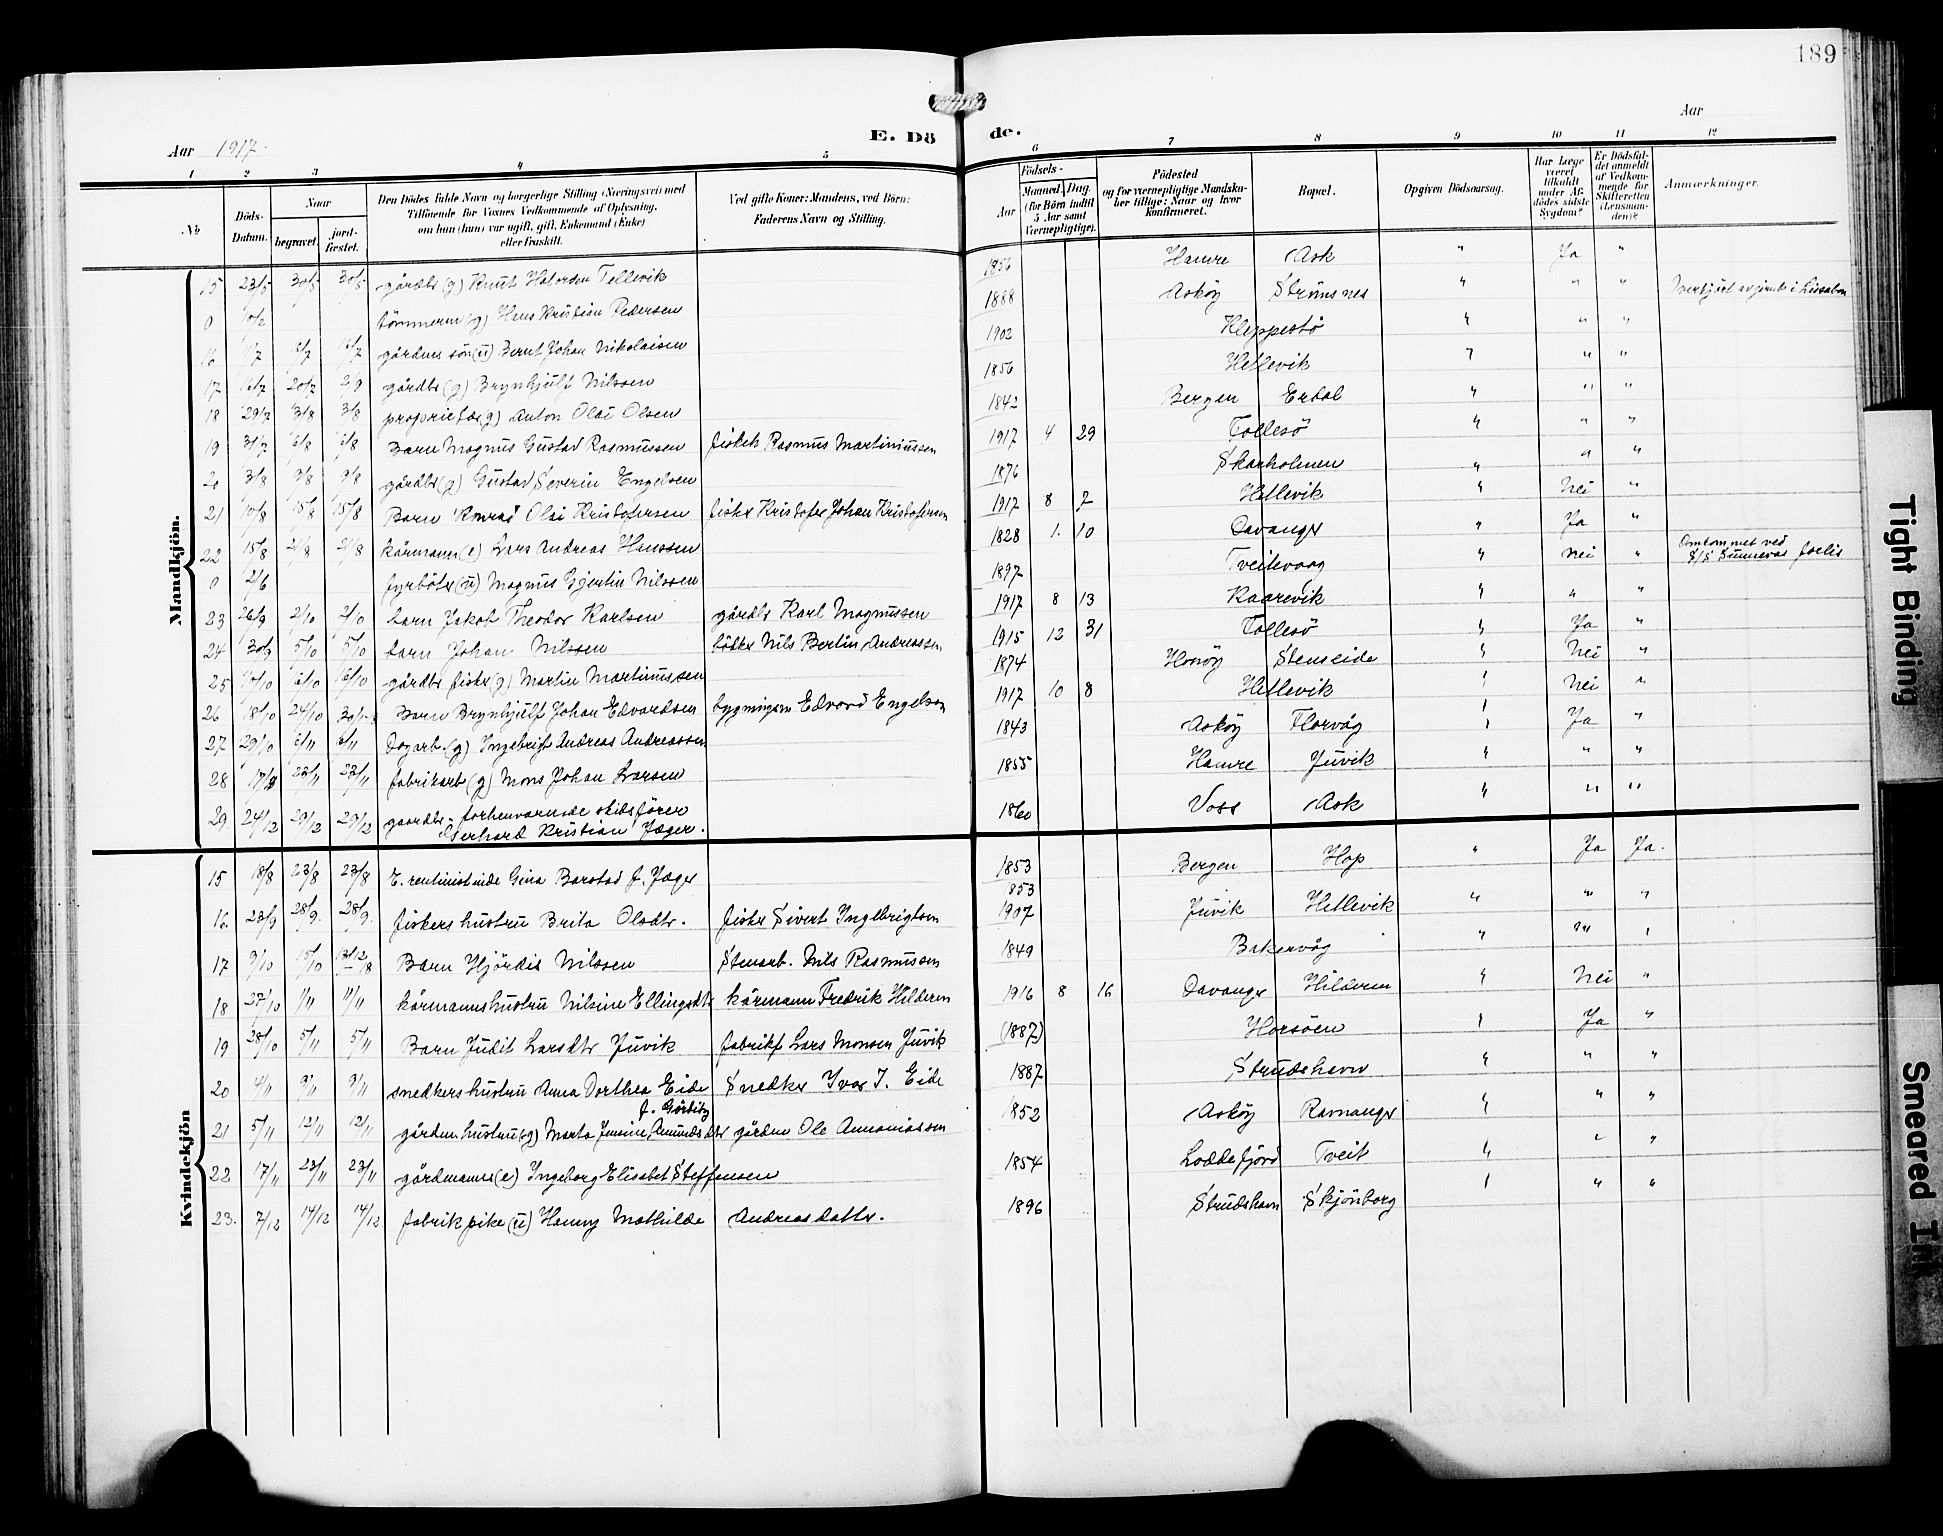 189
Aar 1917.
E. Dö de.
Aar
1 2 3 4 5 6 7 8 9 10 11 12
No
Döds-Datum.
Naar
begravet.
jord-fæstet.
Den Dödes fulde Navn og borgerlige Stilling (Næringsvei) med
Tilföiende for Voxnes Vedkommende af Oplysning,
om han (hun) var ugift, gift, Enkemand (Enke)
eller fraskilt.
Ved gifte Koner: Mandens, ved Börn:
Faderens Navn og Stilling.
Födsels-
Aar
Maaned. Dag.
(for Börn indtil
5 Aar samt
Værnepligtige).
Födested
og for værnepligtige Mandska-
ber tillige: Naar og hvor
konfirmeret.
Bopæl.
Opgiven Dödsaarsag.
Har Læge
været
tilkaldt
under Af-
dödes sidste
Sygdom?
Er Dödsfal-
det anmeldt
af Vedkom-
mende for
Skifteretten
(Lensman-
den)?
Anmærkninger.
Mandkjön.
15 23/5 30/5 30/5 gårdbr (g) Knut Halvorsen Tellevik 1856 Hamre Ask " Ja "
0 10/2 tömmerm (g) Hans Kristian Pedersen 1888 Askøy Strömsnes " " " i Lissabon
16 1/7 6/7 6/7 gårdms sön (u) Bernt Johan Nikolaisen 1902 Kleppestö " " "
17 16/7 20/7 2/9 gårdbr (g) Brynhjulf Nilssen 1856 Hetlevik " " "
18 29/7 3/8 3/8 proprietær (g) Anton Olai Olsen 1842 Bergen Erdal " " "
19 31/7 6/8 6/8 Barn Magnus Gustav Rasmussen fisker Rasmus Martinussen 1917 4 29 Follesö " " "
20 3/8 9/8 9/8 gårdbr (g) Gustav Severin Engelsen 1876 Skarholmen " " "
21 10/8 15/8 15/8 Barn Konrad Olai Kristofersen fisker Kristofer Johan Kristofersen 1917 8 7 Hetlevik " Nei "
22 15/8 21/8 21/8 kårmann (e) Lars Andreas Hanssen 1828 1. 10 Davanger " Ja "
0 2/6 fyrböter (u) Magnus Gjertin Nilssen 1897 Tveitevaag " nei " Omkommet ved S/S Sunnevas forlis
23 26/9 2/10 2/10 barn Jakob Theodor Karlsen gårdbr Karl Magnussen 1917 8 13 Kaarevik " " "
24 30/9 5/10 5/10 barn Johan Nilssen bödker Nils Bertin Andreassen 1915 12 31 Follesö " Ja "
25 10/10 16/10 16/10 gårdbr fisker (g) Martin Martinussen 1874 Stenseide " Nei "
26 18/10 24/10 Barn Brynhjulf Johan Edvardsen bygningsm Edvard Engelsen 1917 10 8 Hetlevik " Nei "
27 29/10 6/11 6/11 Dagarb. (g) Ingebrigt Andreas Andreassen 1843 Askøy Florvåg " Ja "
28 23/11 23/11 fabrikarb (g) Mons Johan Larsen 1855 Hamre Juvik " " "
29 24/12 29/12 29/12 gaardbr. forhenværende skibsförer
Gerhard Kristian Jæger. 1860 Voss Ask " " "
Kvindekjön
15 18/8 23/8 23/8 E. rentinistinde Gina Barstad f. Jæger 1853 Bergen Hop " Ja Ja.
16. 23/9 28/9. 28/9. fiskers hustru Brita Olsdtr. fisker Sivert Ingebrigtsen 1853 1907 Juvik Hetlevik " " "
17 9/10 15/10 Barn Hjördis Nilssen Stenarb. Nils Rasmussen 1849 Bakervåg " " "
18 27/10 1/11 1/11 kårmanns hustru Nilsine Ellingsdtr kårmann Fredrik Hilderen 1916 8 16 Davanger Hilderen " Nei "
19 28/10 5/11 5/11 Barn Judit Larsdtr Juvik fabrikf Lars Monsen Juvik (1887) Horsöen " Ja "
20 4/11 9/11 9/11 snedkers hustru Anna Dorthea Eide Snedker Ivar I. Eide 1887 Strudshavn " " "
21 5/11 12/11 12/11 gårdm. hustru (g) Marta Jensine Amundsdtr gårdm Ole Annaniassen 1852 Askøy Ramanger " " "
22 17/11 23/11 23/11 gårdmanns (e) Ingeborg Elisabet Steffensen 1854 Loddefjord Tveit " " "
23. 7/12 14/12 14/12 fabrikpike (u) Hanny Mathilde Andreasdatter. 1896 Strudshavn Skjönborg " " "
Tight Binding
Smeared Ink